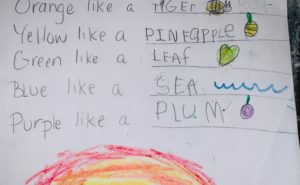 Orange like a TIGER
Yellow like a PINEAPPLE
Green like a LEAF
Blue like a SEA
Purple like a PLUM